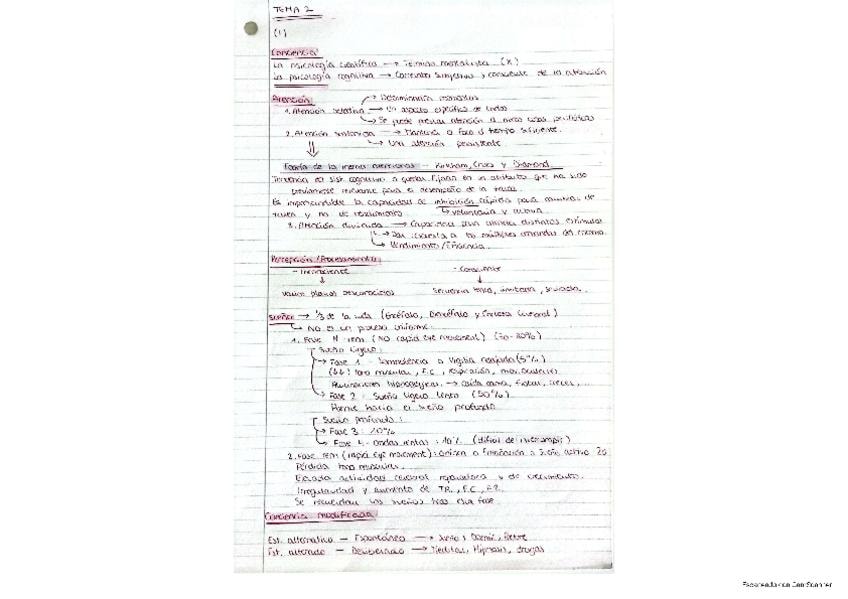 TEMA 2
(1)
Conciencia
La psicología científica → Término mentalista (X)
La psicología cognitiva → Corriente de la atención
Atención
→ Determinación
1. Atención selectiva → Un aspecto específico de
→ Se puede prestar atención a otras cosas periféricas
2. Atención sostenida → Mantener o foco el tiempo suficiente.
→ Una atención persistente.
Teoría de la inercia atencional - Kirkham, Cruess y Diamond
Tendencia del sist. cognitivo a quedar fijado en un atributo que ha sido
previamente relevante para el desempeño de la tarea.
Es imprescindible la capacidad de inhibición rápida para cambiar de
tarea y no de rendimiento. → voluntaria y
3. Atención dividida → Capacidad para atender distintos estímulos
→ Dar respuesta a las múltiples demandas del
→ Rendimiento / Eficiencia.
Percepción / Procesamiento
- Inconsciente
- Consciente
↓ ↓
Varios planos Secuencia lenta, limitada,
Sueño → 1/3 de la vida
→ No es un proceso uniforme
1. Fase N rem (No rapid eye movement) (70-80%)
Sueño ligero:
→ Fase 1 - Somnolencia o vigilia relajada (5%)
tono muscular, F.C, respiración, mov. oculares
Alucinaciones hipnagógicas →
→ Fase 2: Sueño ligero lento (50%)
Puente hacia el sueño profundo
Sueño profundo:
→ Fase 3:
→ Fase 4 - Ondas lentas: 10% (difícil de interrumpir)
2. Fase rem (rapid eye movement): o sueño activo
Pérdida tono muscular.
Elevada actividad cerebral reparadora y de crecimiento.
Irregularidad y aumento de T.A, F.C,
Se recuerdan los sueños tras esta fase.
Conciencia modificada
Est. alternativo - Espontáneo → Sueño, Dormir,
Est. alterado - Deliberado → Meditar, Hipnosis, drogas
Escaneado con CamScanner